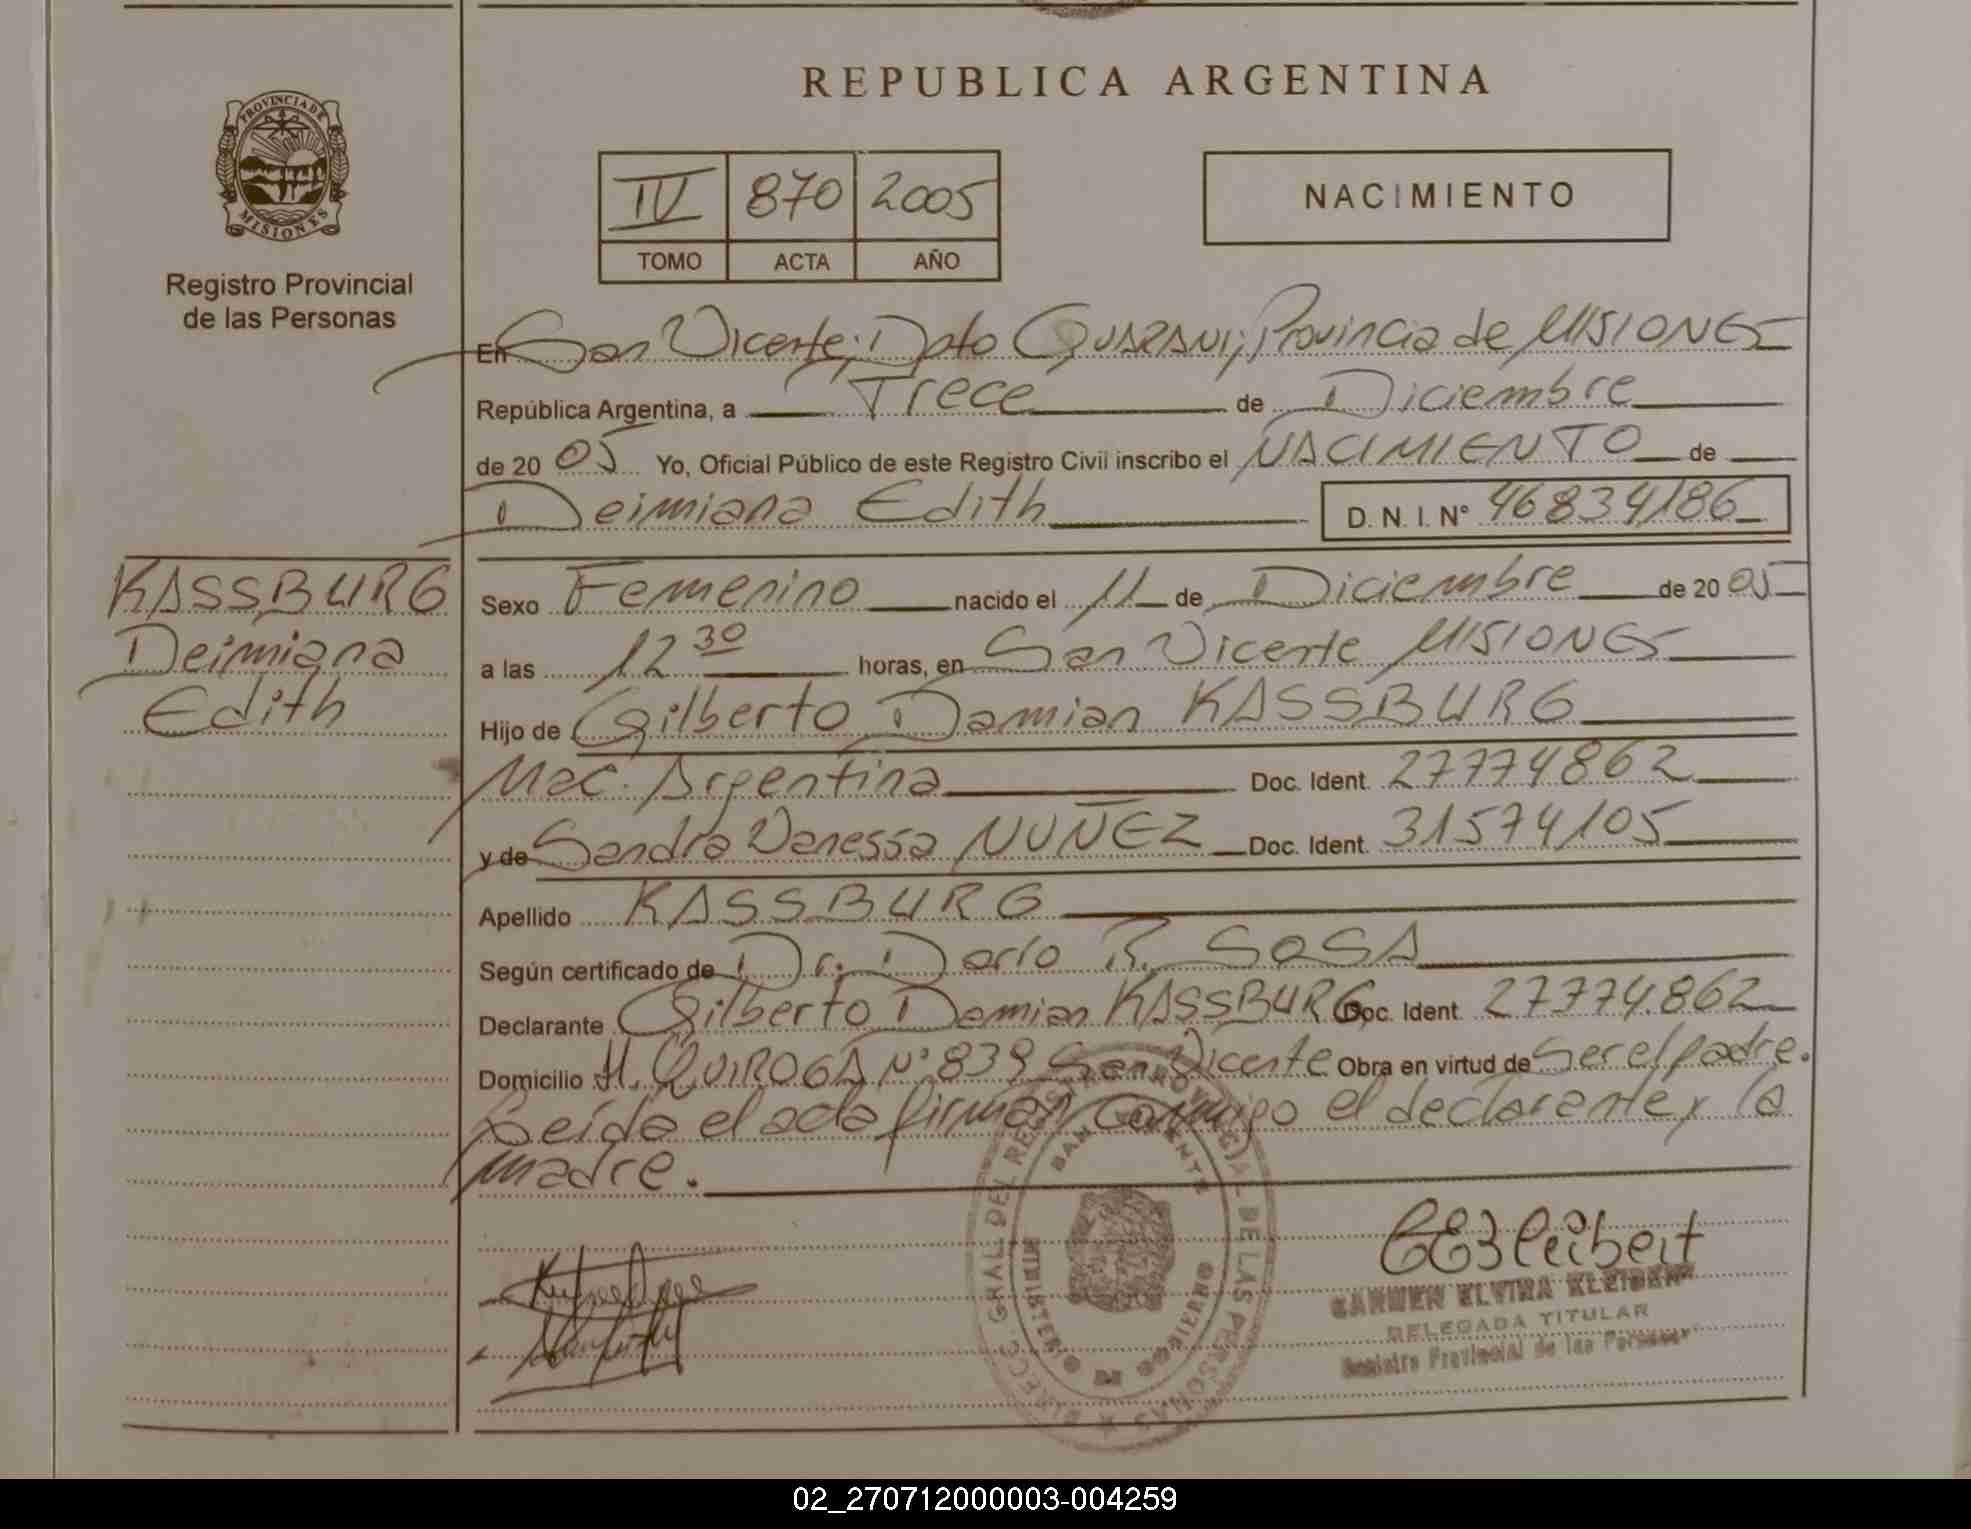 REPUBLICA ARGENTINA
PROVINCIA DE
MISIONES
Registro Provincial
de las Personas
IV 870 2005
TOMO ACTA AÑO
NACIMIENTO
En San Vicente; Dpto GUARANI; Provincia de MISIONES
República Argentina, a Trece de Diciembre
de 2005 Yo, Oficial Público de este Registro Civil inscribo el NACIMIENTO de
Deimiana Edith D. N. I. N° 46834186
KASSBURG
Deimiana
Edith
Sexo Femenino nacido el 11 de Diciembre de 2005
a las 12 30 horas, en San Vicente MISIONES
Hijo de Gilberto Damian KASSBURG
Nac. Argentina Doc. Ident. 27774862
y de Sandra Vanessa NUÑEZ Doc. Ident. 31574105
Apellido KASSBURG
Según certificado de Dr. Darío R. SOSA
Declarante Gilberto Damian KASSBURG Doc. Ident. 27774.862
Domicilio H. QUIROGA N° 839 San Vicente Obra en virtud de Ser el padre.
Leída el acta firman conmigo el declarante y la
madre.
DIRECC. GRAL. DEL REGISTRO PROVINCIAL DE LAS PERSONAS
SAN VICENTE
MINISTERIO DE GOBIERNO
CARMEN ELVIRA KLEIBERT
DELEGADA TITULAR
Registro Provincial de las Personas
02_270712000003-004259